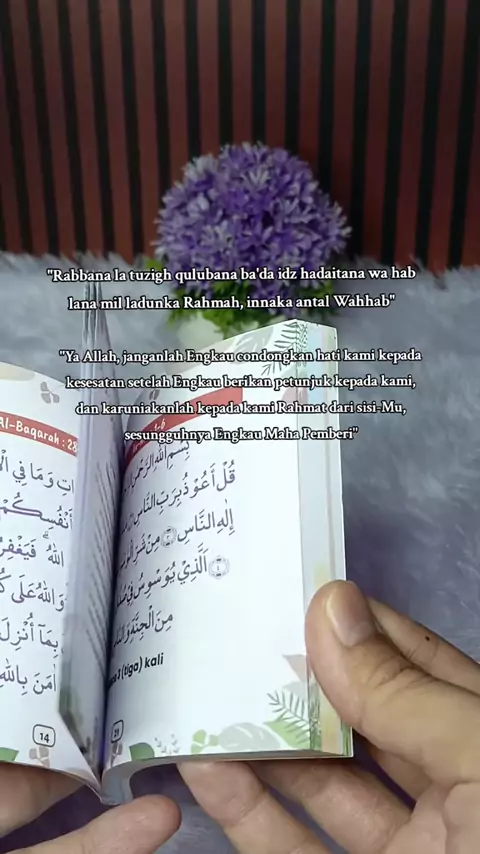 "Rabbana la tuzigh qulubana ba'da idz hadaitana wa hab
lana mil ladunka Rahmah, innaka antal Wahhab"
"Ya Allah, janganlah Engkau condongkan hati kami kepada
kesesatan setelah Engkau berikan petunjuk kepada kami,
dan karuniakanlah kepada kami Rahmat dari sisi-Mu,
sesungguhnya Engkau Maha Pemberi"
Al-Baqarah : 28
وَمَا فِي
أَنْفُسِكُمْ
اللهُ ۗ فَيَغْفِرُ
وَاللهُ عَلَى
بِمَآ أُنْزِلَ
اٰمَنَ بِاللهِ
14
بِسْمِ اللهِ
قُلْ أَعُوْذُ بِرَبِّ النَّاسِ
إِلٰهِ النَّاسِ ۝ مِنْ شَرِّ
الَّذِيْ يُوَسْوِسُ فِيْ
مِنَ الْجِنَّةِ
(tiga) kali
21